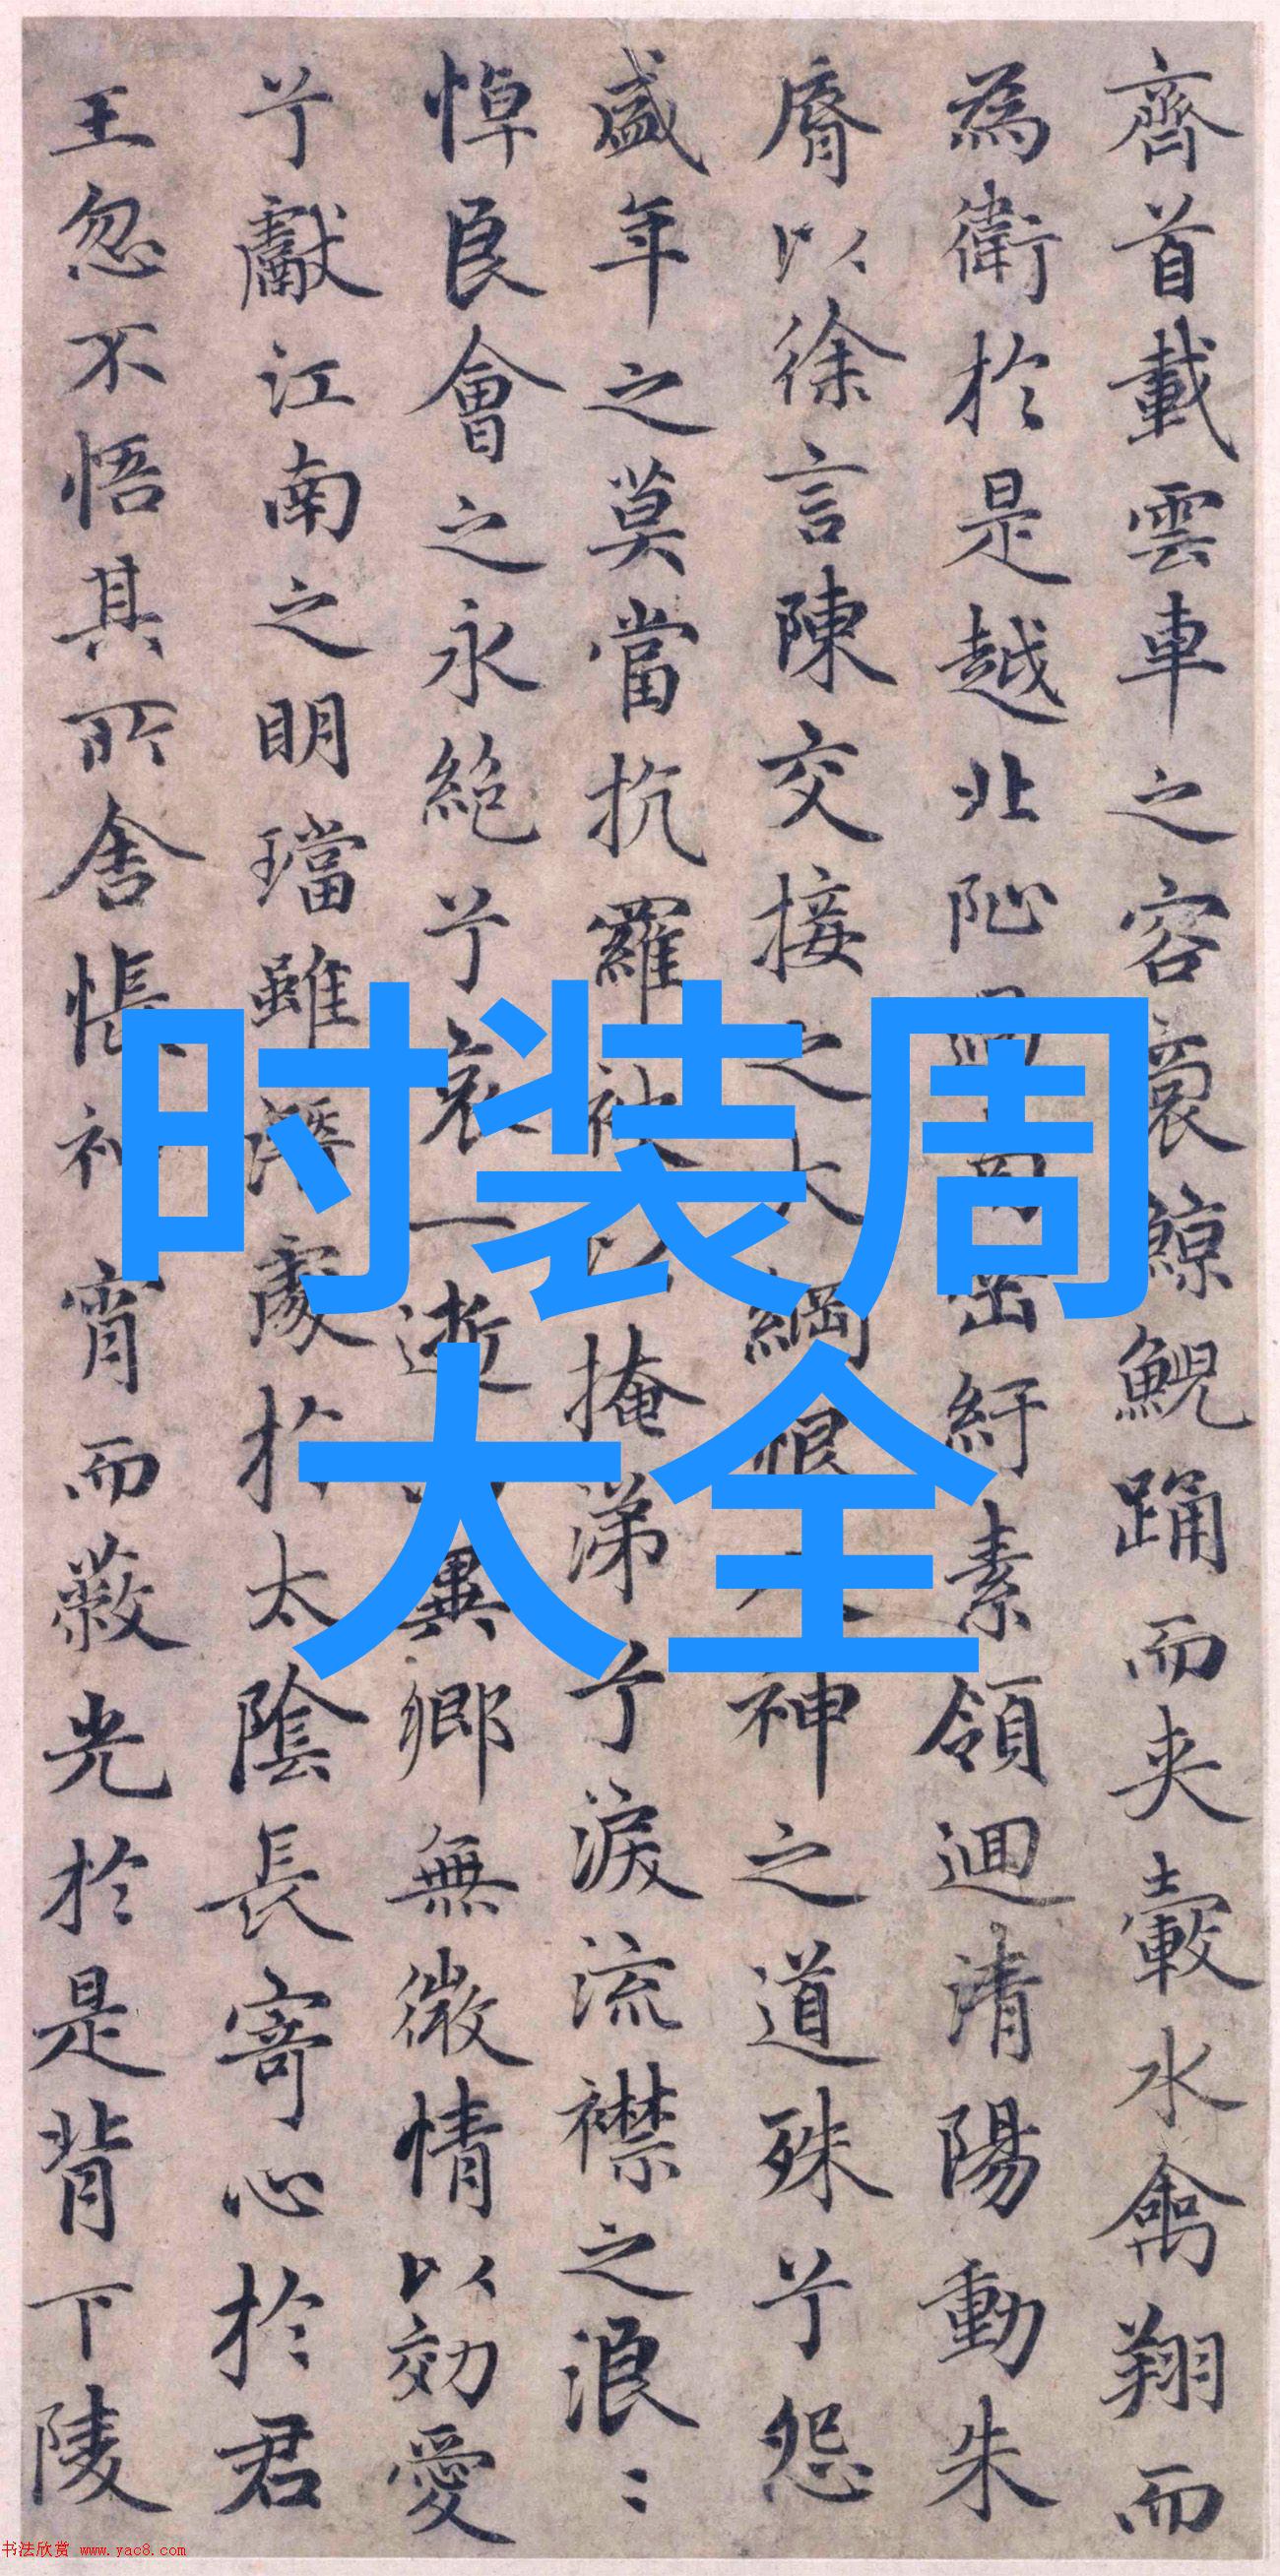 齊首載雲車之容裔鯨鯢踊而夾轂水禽翔而
為衛於是越北沚過南岡紆素領迴清陽動朱
脣以徐言陳交接之大綱恨人神之道殊兮怨
盛年之莫當抗羅袂以掩涕兮淚流襟之浪〻
悼良會之永絶兮哀一逝而異鄉無微情以効愛
兮獻江南之明璫雖潛處於太陰長寄心於君
王忽不悟其所舍悵神宵而蔽光於是背下陵
时装周
大全
书法欣赏 www.yac8.com